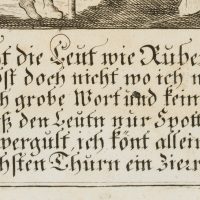 st die Leut wie Rube
st doch nicht wo ich n
h grobe Wort und kein
ß den Leutn nur Spott
vergult, ich könt allein
hsten Thurn ein Zierr